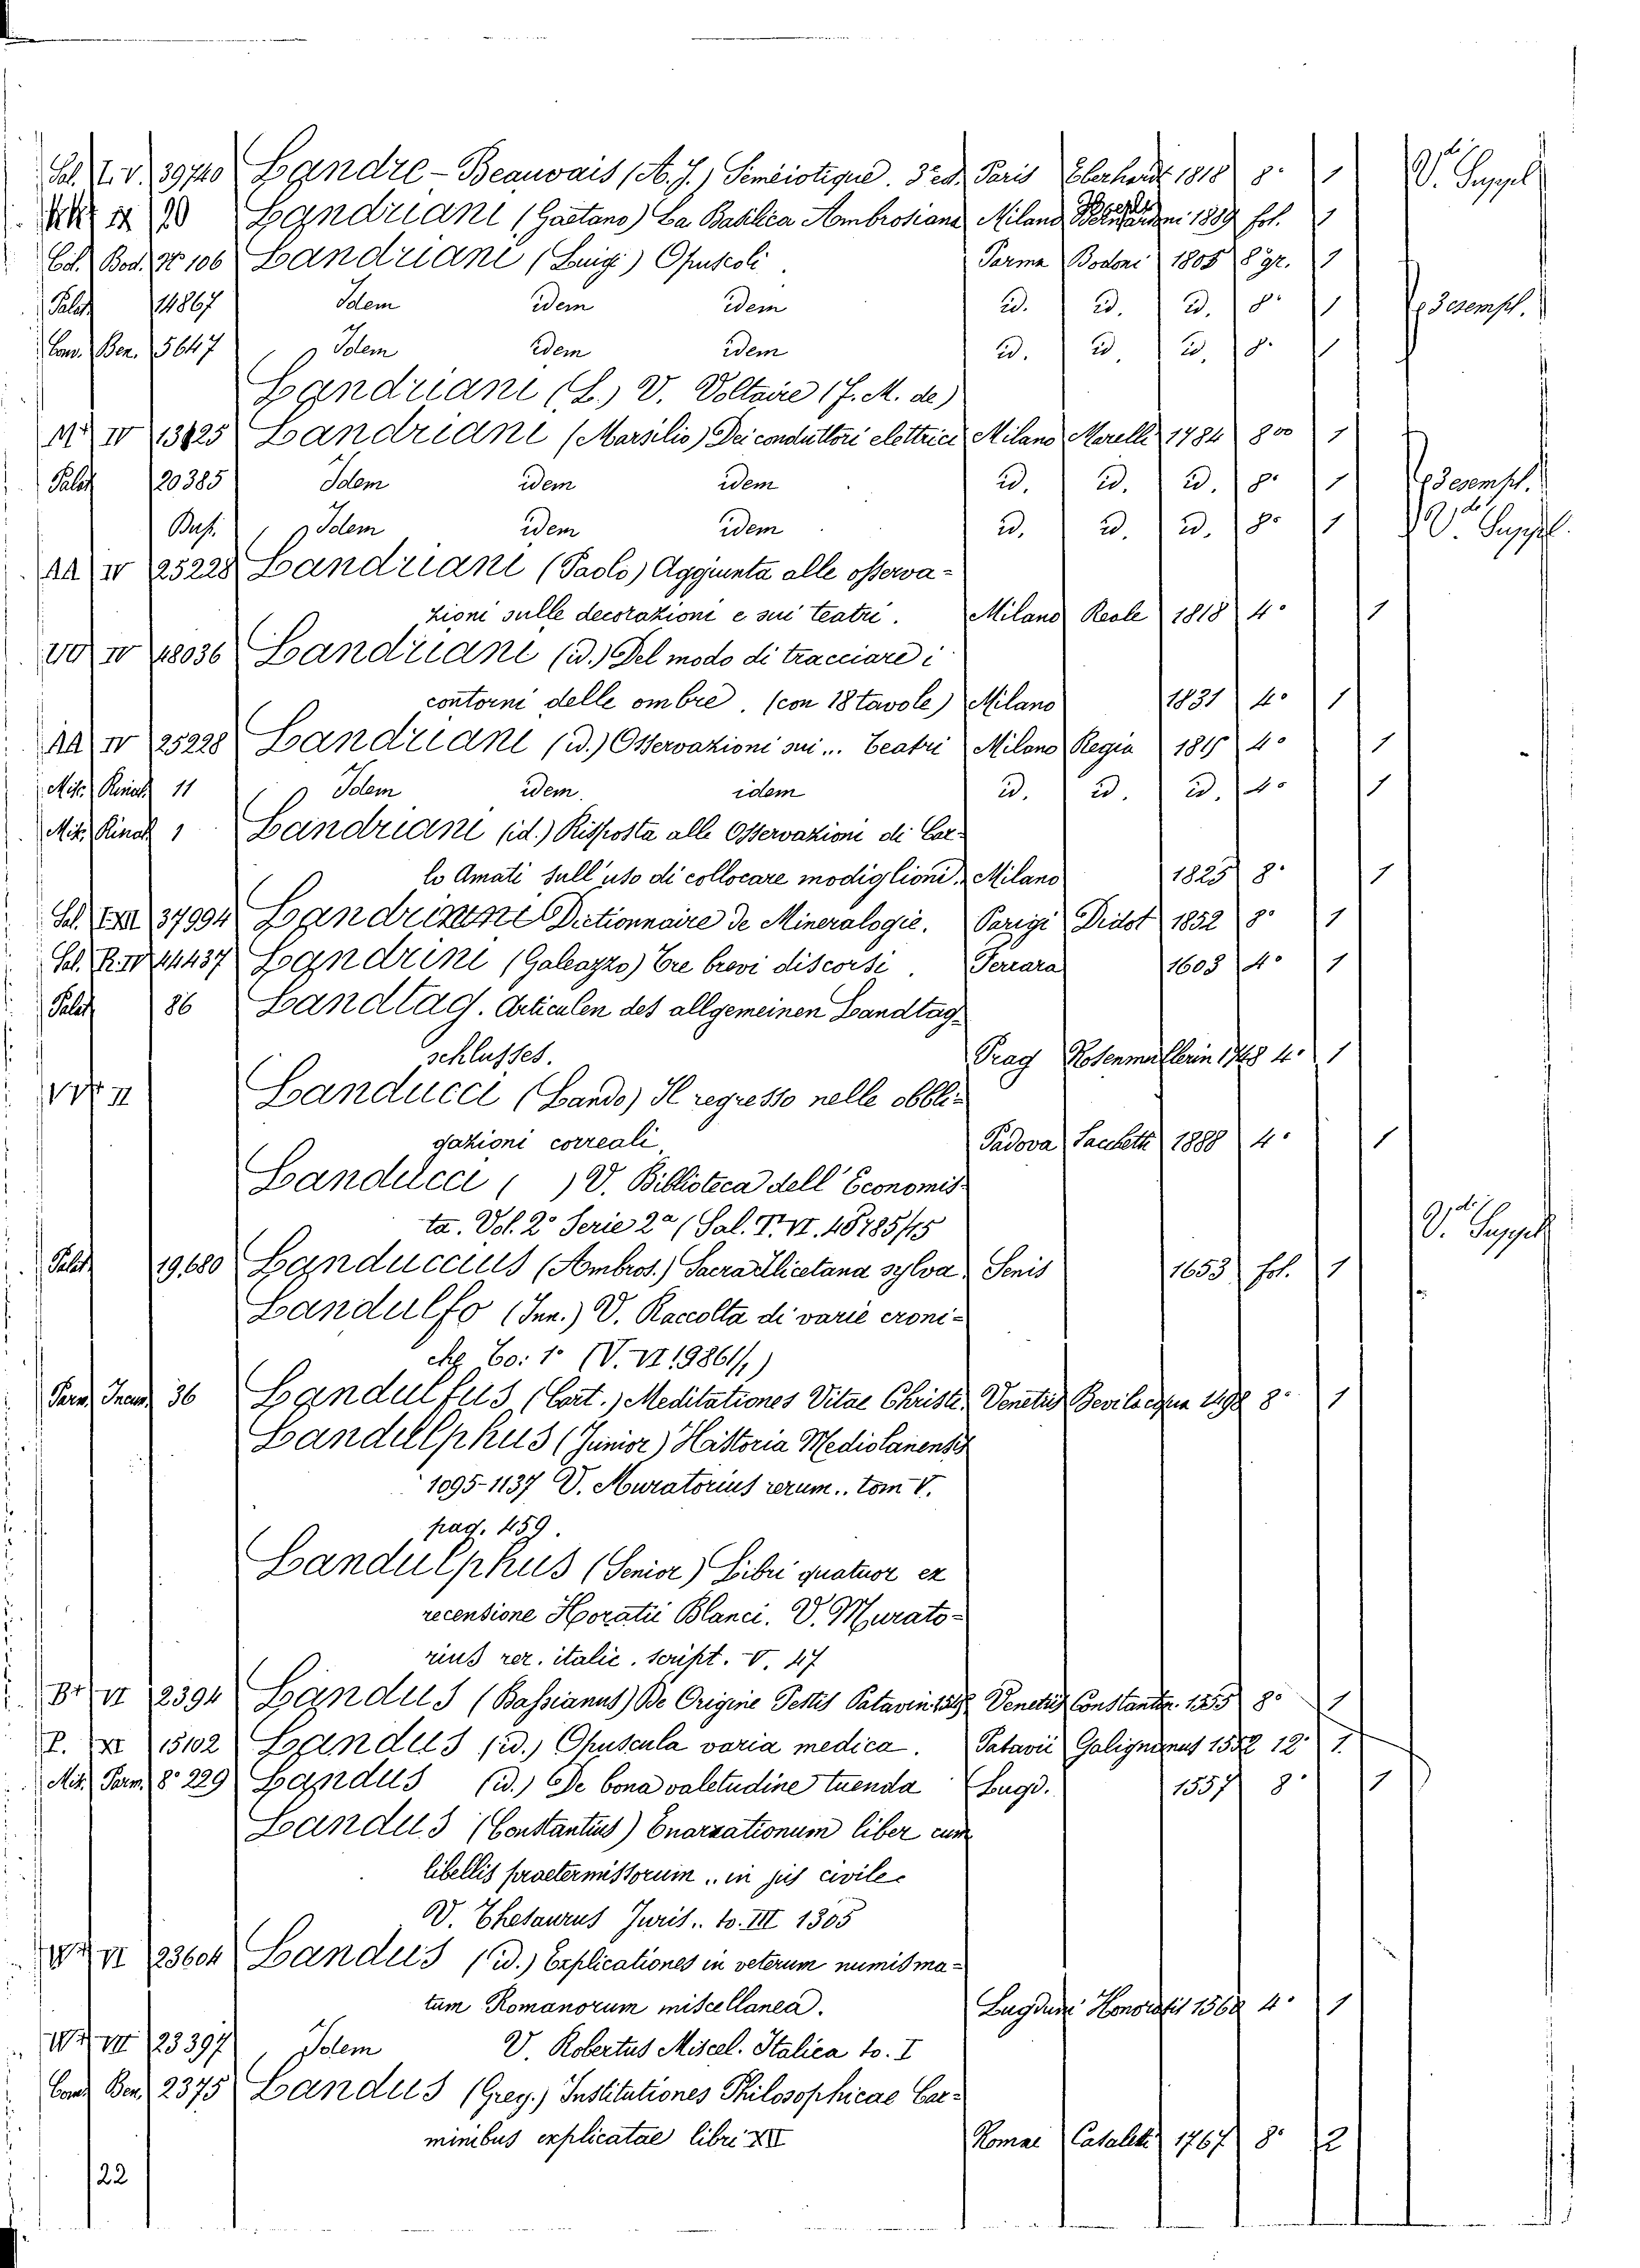 Sal. T. V. 39740 Landre-Beauvais (A. J.) Semèiotique. 3e ed. Paris Eberhardt 1818 8° 1 V. Suppl.
20 Landriani (Gaetano) La Basilica Ambrosiana Milano Hoepli 1889 fol. 1
Col. Bod. N° 106 Landriani (Luigi) Opuscoli. Parma Bodoni 1805 8 gr. 1
Palat. 14867 Idem idem idem id. id. id. 8° 1 3 esempl.
Com. Ben. 5647 Idem idem idem id. id. id. 8° 1
Landriani (L.) V. Voltaire (F. M. de)
IV 13425 Landriani (Marsilio) Dei conduttori elettrici Milano Morelli 1784 8vo 1
Palat. 20385 Idem idem idem id. id. id. 8° 1 3 esempl.
Bas. Idem idem idem id. id. id. 8° 1 V. Suppl.
AA IV 25228 Landriani (Paolo) Aggiunta alle osserva-
zioni sulle decorazioni e sui teatri. Milano Reale 1818 4° 1
VV IV 18036 Landriani (id.) Del modo di tracciare i
contorni delle ombre. (con 18 tavole) Milano 1831 4° 1
AA IV 25228 Landriani (id.) Osservazioni sui... teatri Milano Regia 1815 4° 1
Misc. Rinal. 11 Idem idem idem id. id. id. 4° 1
Mis. Rinal. 1 Landriani (id.) Risposta alle Osservazioni di Car-
lo Amati sull'uso di collocare modiglioni.. Milano 1825 8° 1
37994 Dictionnaire de Mineralogie. Parigi Didot 1852 8° 1
Sal. R. IV 44437 Landrini (Galeazzo) Tre brevi discorsi. Ferrara 1603 4° 1
Palat. 86 Landtag. Articulen des allgemeinen Landtag-
schlusses. Prag Rosenmüllerin 1748 4° 1
II Landucci (Lando) Il regresso nelle obbli-
gazioni correali. Padova Sacchetti 1888 4° 1
Landucci ( ) V. Biblioteca dell'Economis-
ta. Vol. 2° Serie 2a (Sal. T. VI. 48785/15 V. Suppl.
Palat. 19,680 Landuccius (Ambros.) Sacra Ilicetana sylva. Senis 1653 fol. 1
Landulfo (Jun.) V. Raccolta di varie croni-
che To: 1° (V. VI 19861/1)
Parm. Incun. 36 Landulfus (Cart.) Meditationes Vitae Christi. Venetiis Bevilacqua 1498 8° 1
Landulphus (Junior) Historia Mediolanensis
1095-1137 V. Muratorius rerum.. tom V.
pag. 459.
Landulphus (Senior) Libri quatuor ex
recensione Horatii Blanci. V. Murato-
rius rer. italic. script. V. 47
VI 2394 Landus (Bassianus) De Origine Pestis Patavin. Venetiis Constantin. 1555 8° 1
P. XI 15102 Landus (id.) Opuscula varia medica. Patavii Galignanus 1552 12° 1.
Mis. Parm. 8° 229 Landus (id.) De bona valetudine tuenda Lugd. 1557 8° 1
Landus (Constantius) Enarrationum liber cum
libellis praetermissorum.. in jus civile
V. Thesaurus Juris.. to. III 1305
VI 23604 Landus (id.) Explicationes in veterum numisma-
tum Romanorum miscellanea. Lugduni Honoratis 1560 4° 1
VII 23397 Idem V. Robertus Miscel. Italica to. I
Com. Ben. 2375 Landus (Greg.) Institutiones Philosophicae Car-
minibus explicatae libri XII Romae Casaletti 1767 8° 2
22